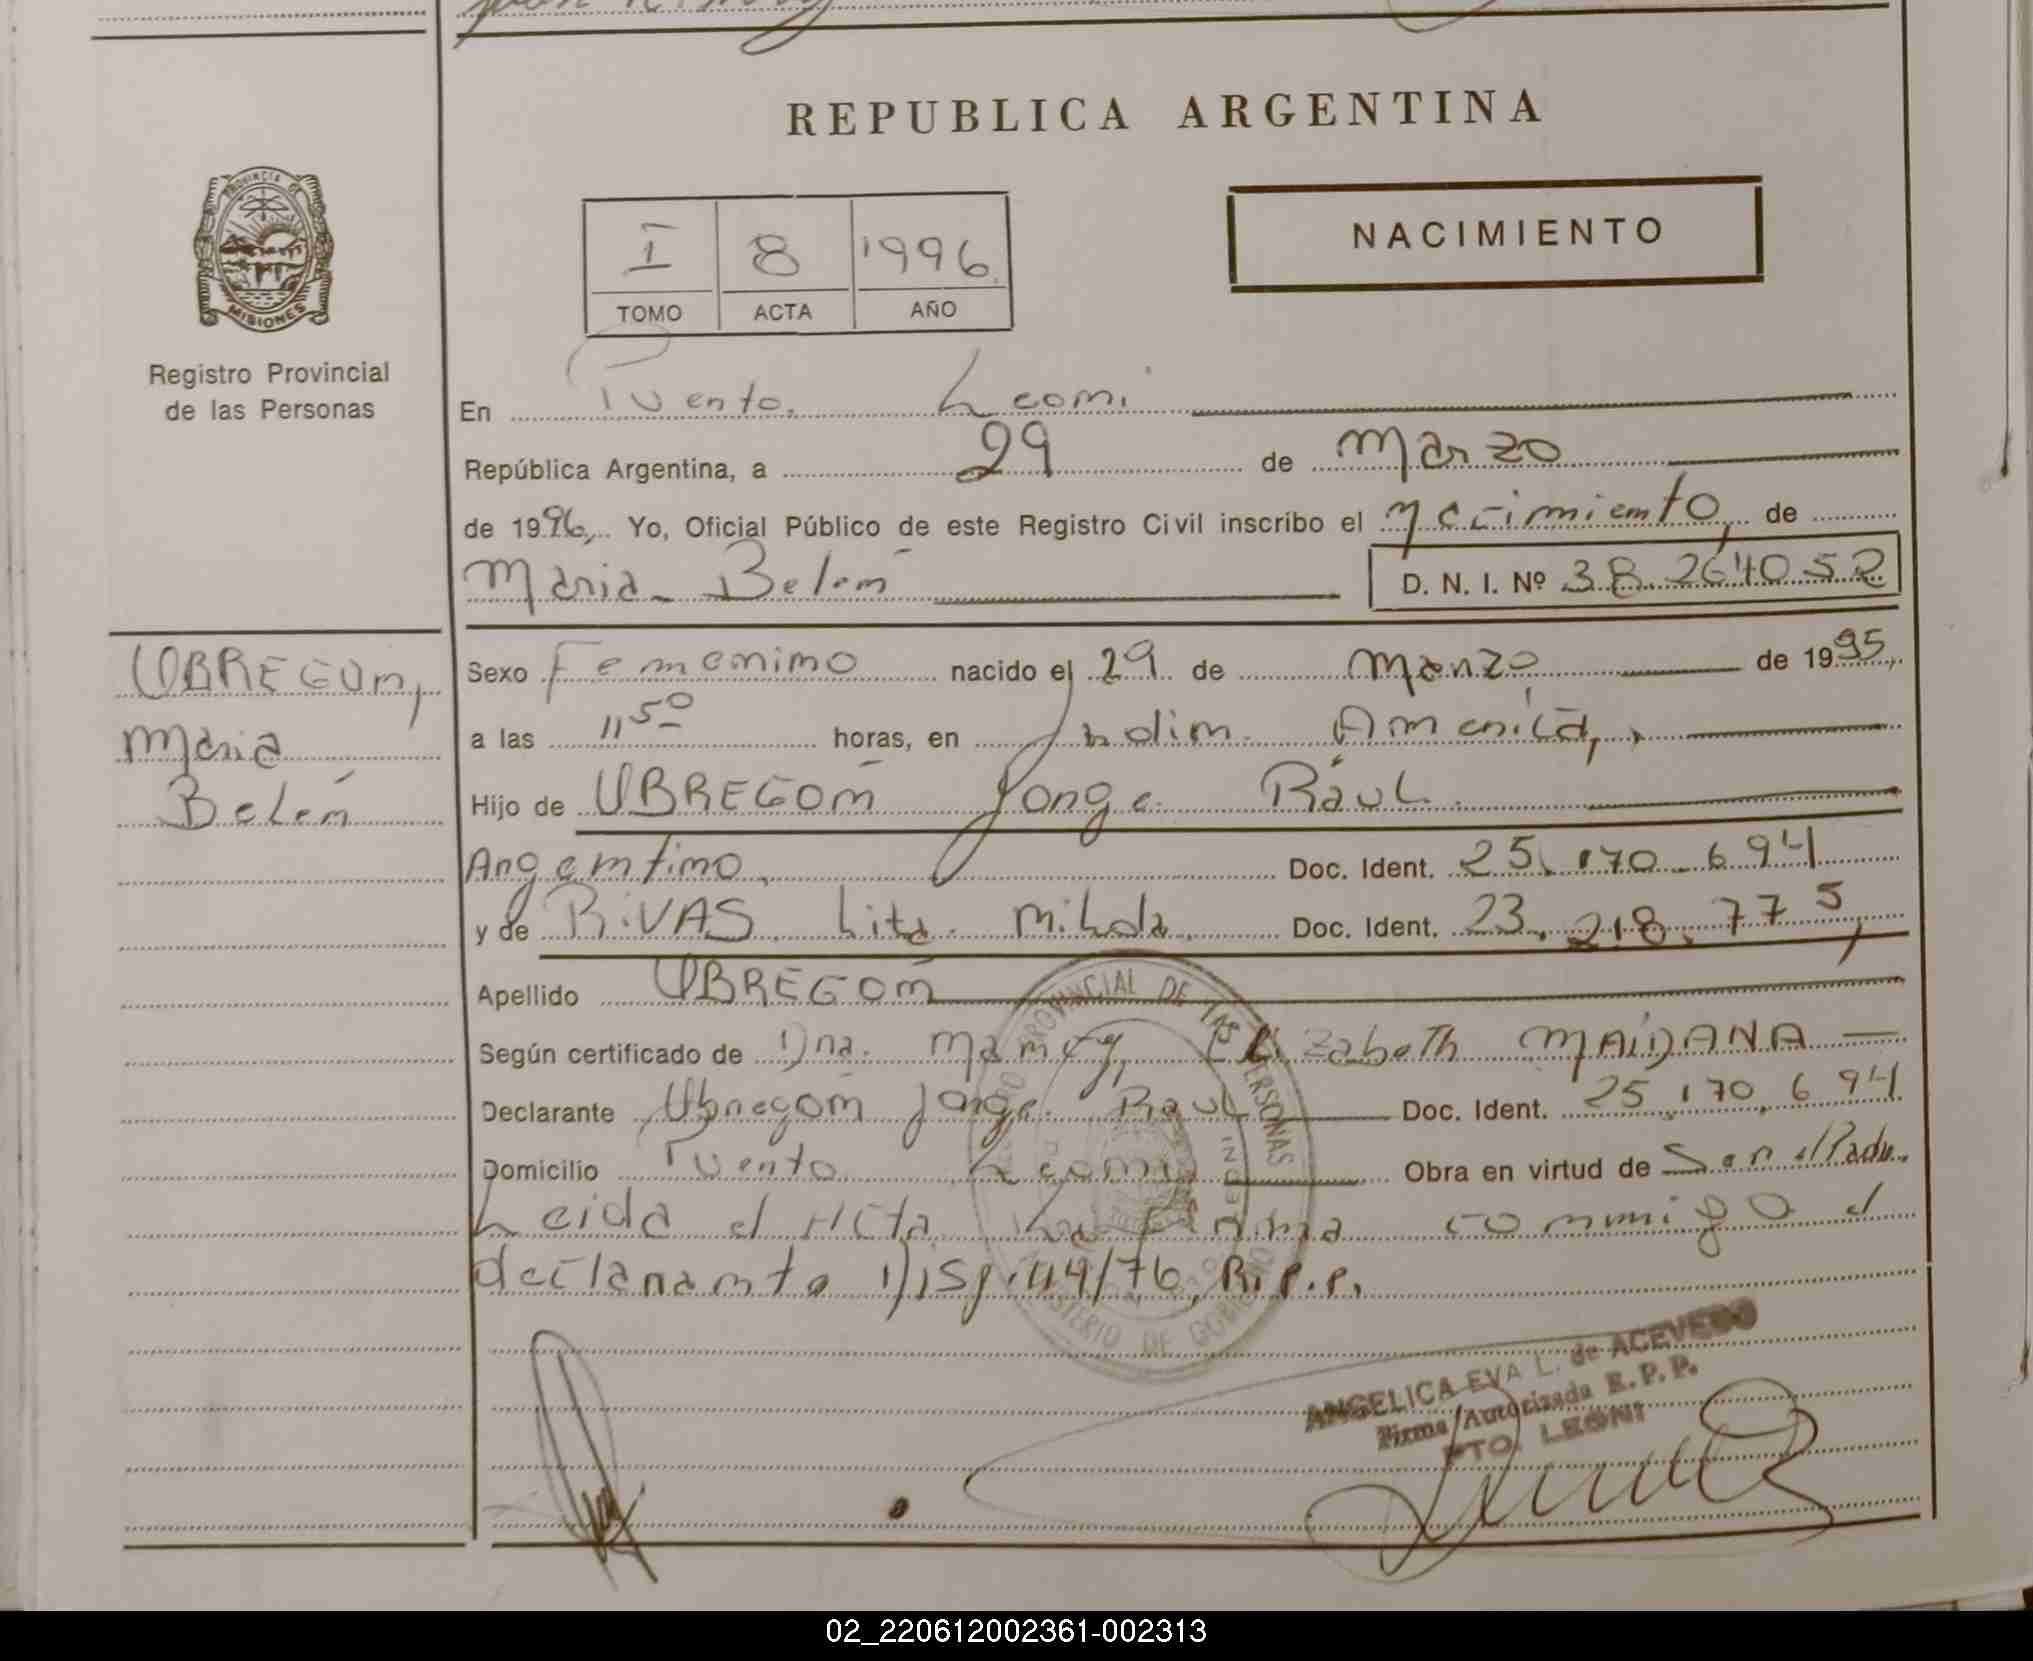 REPUBLICA ARGENTINA
PROVINCIA DE
MISIONES
Registro Provincial
de las Personas
I 8 1996
TOMO ACTA AÑO
NACIMIENTO
En Puerto Leoni
República Argentina, a 29 de Marzo
de 1996, Yo, Oficial Público de este Registro Civil inscribo el Nacimiento, de
Maria Belén D. N. I. Nº 38.264052
UBREGON,
Maria
Belén
Sexo Femenino nacido el 29 de Marzo de 1995,
a las 11 50 horas, en Jardin America,
Hijo de UBREGÓN Jorge Raúl
Argentino, Doc. Ident. 25.170.694
y de RiVAS Lita Milda Doc. Ident. 23.218.775,
Apellido UBREGÓN
Según certificado de Dra. Nancy Elizabeth MAiDANA
Declarante Ubregón Jorge Raul Doc. Ident. 25.170.694
Domicilio Puerto Leoni Obra en virtud de Ser el Padre
Leida el Acta La Firma conmigo el
declarante Disp. 114/76, R.P.P.
PROVINCIAL DE LAS PERSONAS
MINISTERIO DE GOBIERNO
ANGELICA EVA L. de ACEVEDO
Firma Autorizada R.P.P.
PTO. LEONI
02_220612002361-002313